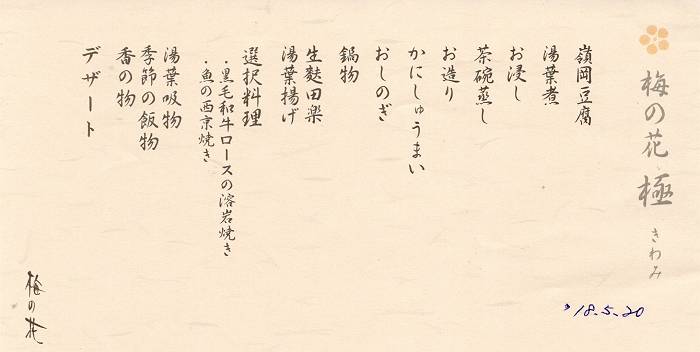 梅の花 極 きわみ
嶺岡豆腐
湯葉煮
お浸し
茶碗蒸し
お造り
かにしゅうまい
おしのぎ
鍋物
生麩田楽
湯葉揚げ
選択料理
・黒毛和牛ロースの溶岩焼き
・魚の西京焼き
湯葉吸物
季節の飯物
香の物
デザート
'18.5.20
梅の花